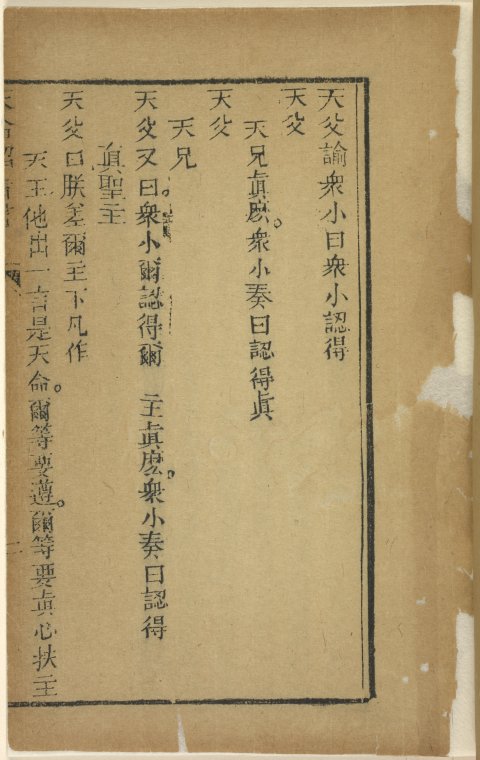 天父諭衆小曰衆小認得
天父
天兄眞麽。衆小奏曰認得眞
天父
天兄
天父又曰衆小爾認得爾 主眞麽。衆小奏曰認得
眞聖主
天父曰朕差爾主下凡作
天王他出一言是天命。爾等要遵。爾等要眞心扶主
天命詔旨書